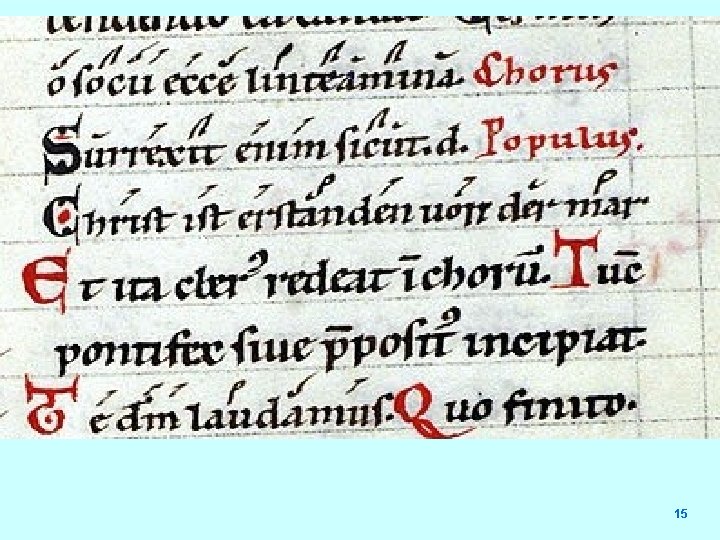 ó sócií éccé línteámíná. Chorus
Surréxít éním sícut. d. Populus.
Christ ist erstanden uon der mar
Et ita cler' redeat ī chorū. Tuc̄
pontifex siue p̄posit' incipiat.
Te dm̄ laudamus. Quo finito.
15